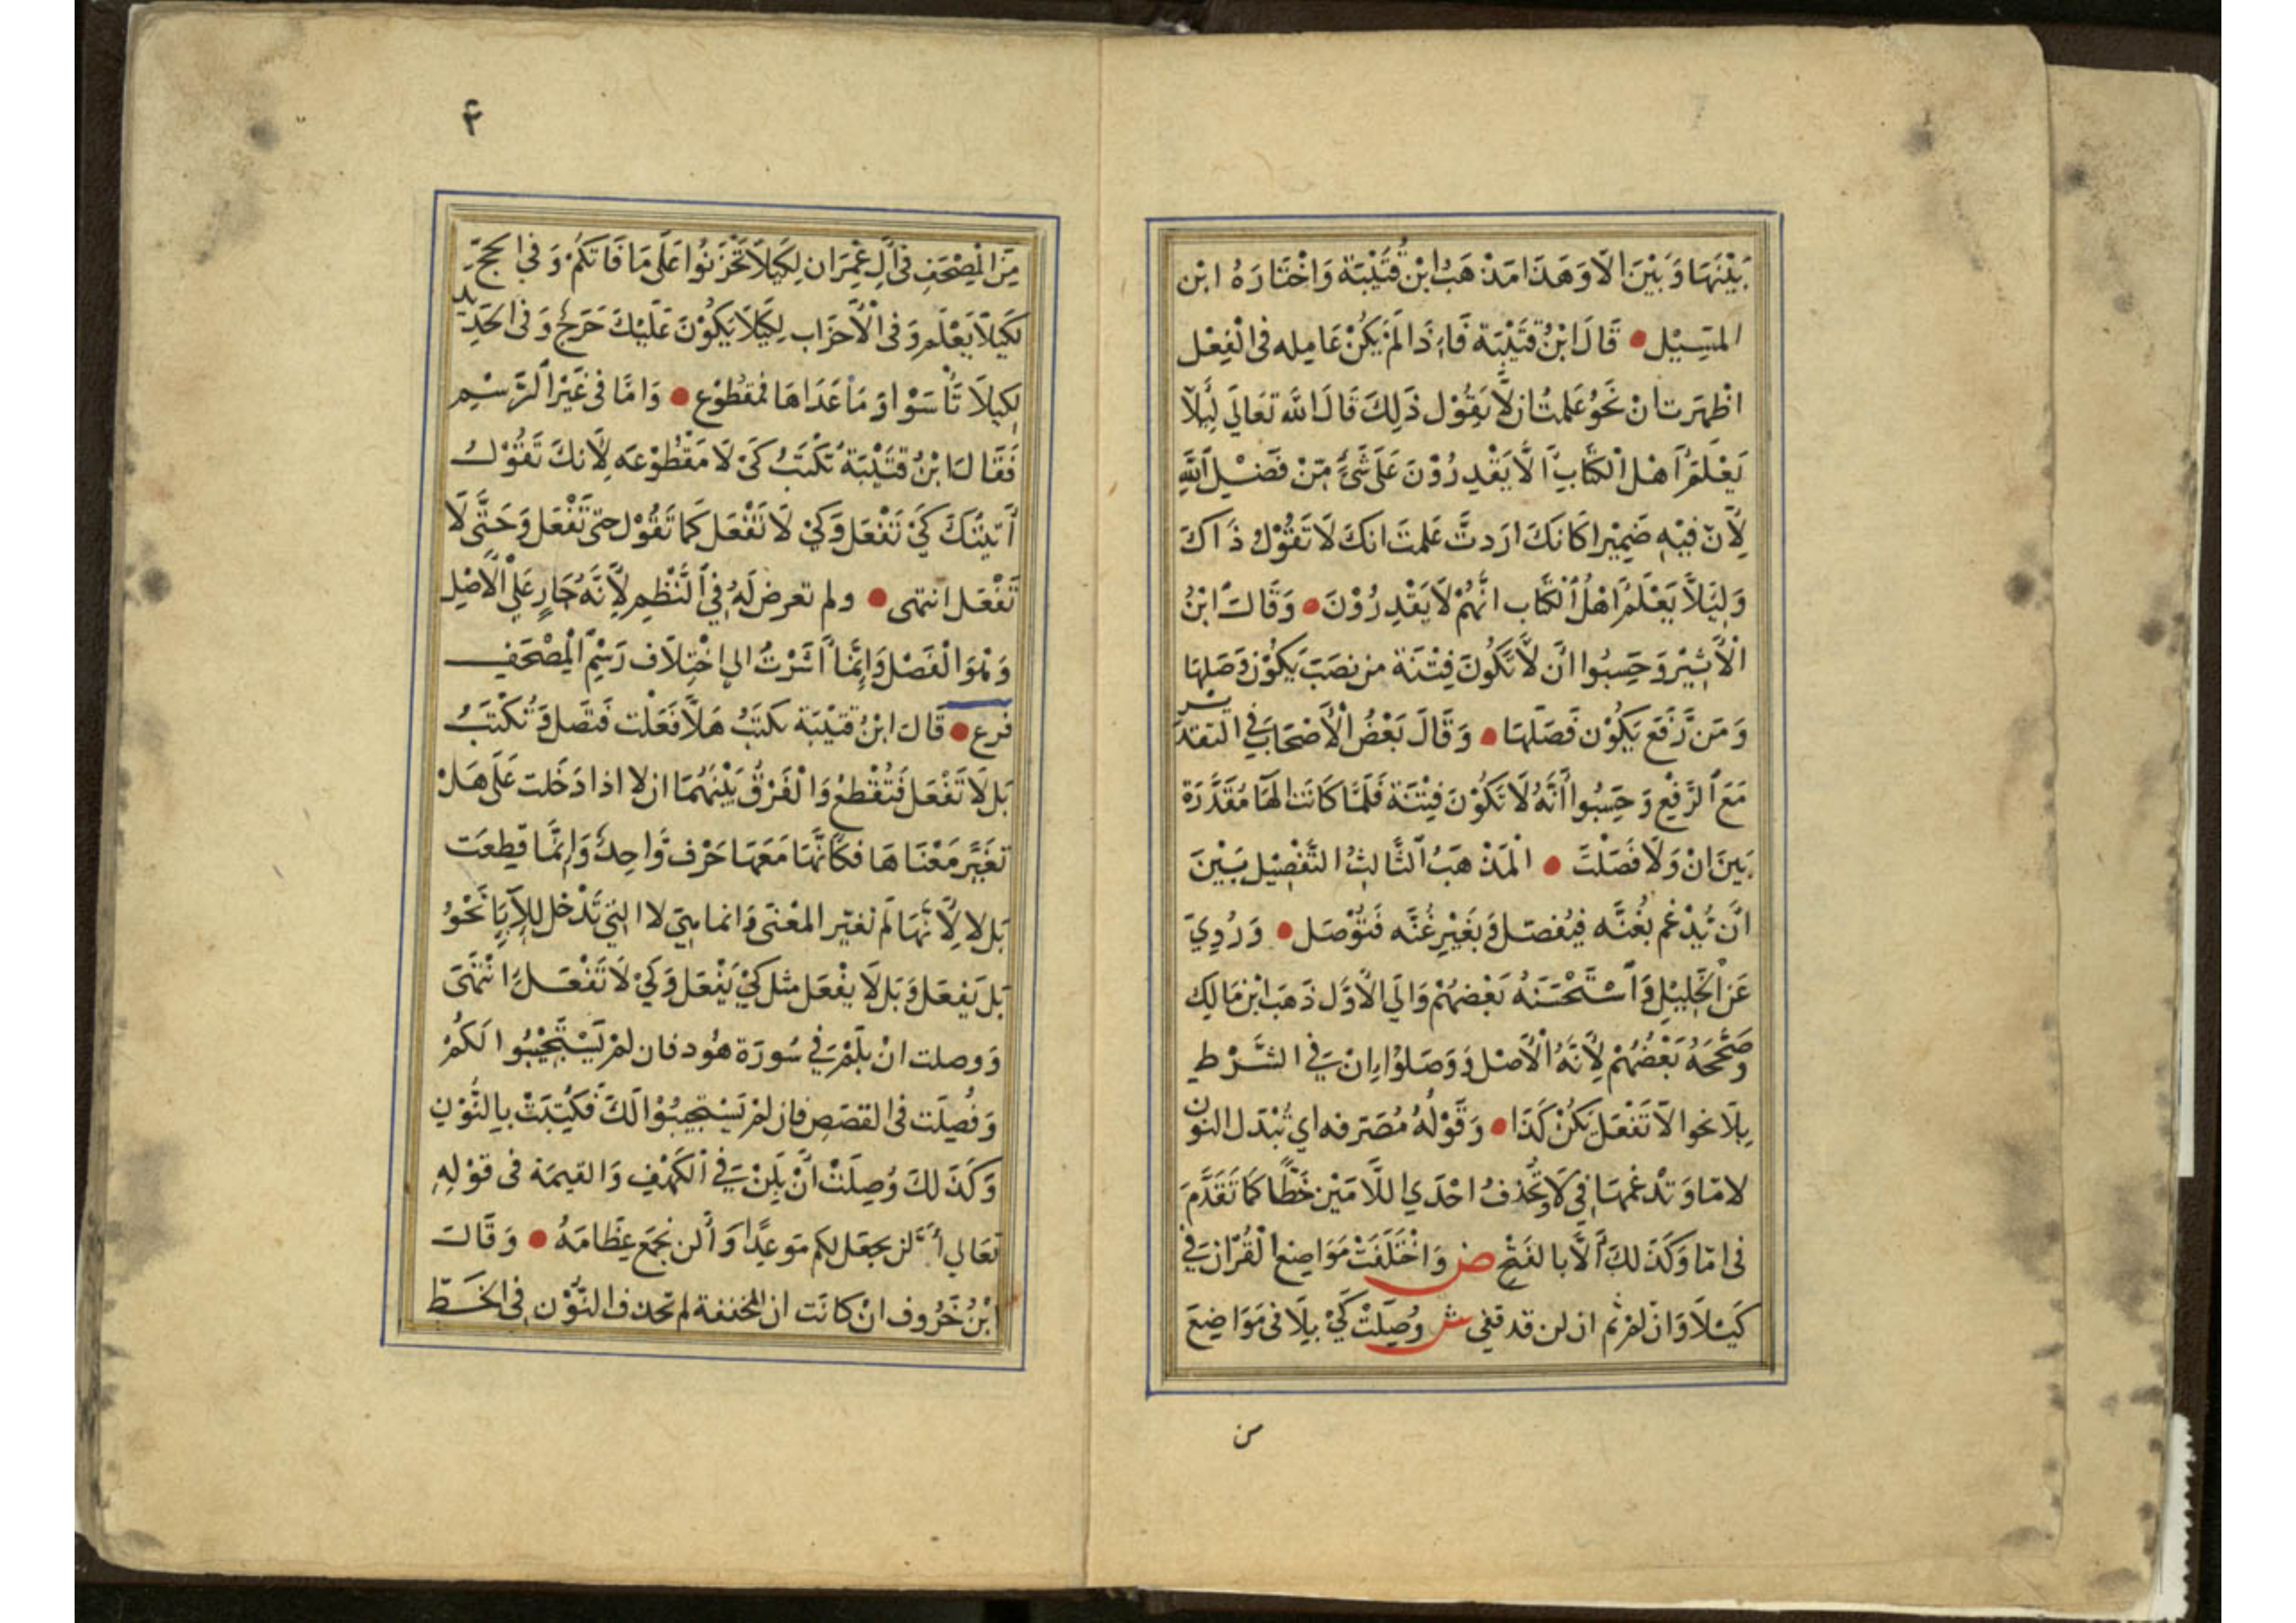 بَيْنَهَا وَبَيْنَ الَا وَهَذَا مَذْهَبُ ابْنُ قُتَيْبَة وَاخْتَارَهُ ابْن
السِّيْد قَالَ ابْنُ قُتَيْبَة فَاِذَا لَمْ يَكُنْ عَامِله فى الْفِعْل
اظْهَرت ان نَحْوُ عَلِمتُ ان لَّا يَقُوْل ذَلِكَ قَالَ اللّٰه تَعَالَى لِئَلَّا
يَعْلَمَ اَهْلُ الْكِتَابِ اَلَّا يَقْدِرُوْنَ عَلَى شَىْءٍ مِّنْ فَضْلِ اللَّهِ
لِاَنّ فِيْهِ ضَمِيْرا كَانَكَ ارَدتَّ عَلِمتَ انكَ لَا تَقُوْلُ ذَاكَ
وَلِئَلَّا يَعْلَمَ اَهْلُ الْكِتَاب انَّهُمْ لَا يَقْدِرُوْنَ وَقَالَ ابْنُ
الْاَثِيْر وَحَسِبُوا اَن لَّا تَكُونَ فِتْنَة من نصَبَ يَكُوْن وَصَلهَا
وَمَن رَّفَعَ يَكُوْن فَصَلَهَا وَقَالَ بَعْضُ الْاَصْحَابَ فِي التقدير
مَعَ الرَّفِعِ وَحَسِبُوا أَنَّهُ لَا تَكُوْنَ فِتْنَة فَلَمَّا كَانَت الهَا مُقَدَّرَة
بَينَ انْ وَلَا فَصَلْتَ الْمَذْهَبُ الثَّالِثُ التَّفْصِيْل بَيْنَ
اَن تُدْغَم بغُنَّه فيُفصَل وَبِغَيْرِ غُنَّه فَتُوْصَل وَرُوِيَ
عَن الْخَلِيْلِ وَاسْتَحْسَنَهُ بَعْضُهُمْ وَالَى الْاَوَّل ذَهَبَ ابْن مَالِك
وَصَحَّحَهُ بَعْضُهُمْ لِاَنَّهُ الْاَصْل وَوَصَلوُا اِنْ فِي الشَّرْط
بِلَا نحوا لاَّ تَفْعَلْ يَكُنْ كَذَا وَقَوْلُهُ مُصَرفه اي تُبْدَل النون
لامّا وَتدْغمهَا فِي لَا وتُحْذفُ احْدَي اللَّامَيْن خَطًّا كَمَا تَقَدَّمَ
فى امّا وَكَذَلكَ اَلَّا بالفَتْحِ ص وَاخْتَلَفَتْ مَوَاضِعُ الْقُرْانِ فِي
كَيْلَا وَان لمْ ثم ان لن قد قفى ش وُصِلَتْ كَيْ بِلَا فى مَوَاضِعَ
من
۴
مِّنَ الْمِصْحَفِ فى اَلِ عِمْرَان لِكَيْلَا تَحْزَنُوا عَلَى مَا فَاتَكُمْ وَفى الحج
لكَيْلَا يَعْلَم وَفى الْاَحْزَاب لِكَيْلَا يَكُوْنَ عَلَيْكَ حَرَجٌ وَفى الحَدِيد
لِكَيلَا تَأْسَوْا وَمَا عَدَاهَا فَمقطُوْع وَامَّا فى غَيْرِ الرَّسْيِم
فَقَالَ ابْنُ قُتَيْبَة تُكْتَبُ كَىْ لَا مَقْطُوْعَه لِاَنكَ تَقُوْلُ
اَتَيْتُكَ كَيْ تَفْعَل وَكَيْ لَا تَفْعَل كَمَا تَقُوْل حتى تَفْعَل وَحَتَّى لَا
تَفْعَل انتهى ولم تعرض لَهُ فِي النَّظْمِ لِاَنَّهُ جَارٍ عَلَي الْاَصْلِ
وَهُوَ الْفَصْل وَاِنَّمَا اَشَرْتُ الي اخْتِلَاف رَسْمِ الْمِصْحَفِ
فرع قَالَ ابْنُ قُتَيْبَة تكتَبُ هَلاَّ فَعَلْت فَتصَل وَتُكْتَبُ
بَل لَا تَفْعَل فَتُقْطعْ وَالْفَرْقُ بَيْنَهُمَا ان لا اذا دَخَلت عَلَى هَلْ
تغَيَّر مَعْنَاهَا فكَاَنَّهَا مَعَهَا حَرْف وَّاحِدٌ وَاِنَّمَا قطِعَت
بَل لا لِاَنَّهَا لَم تغيّر المعْنَى وَانما هيَ لا التِي تَدْخل لِلْاِبَا نَحْوُ
بَل يَفعَل وَبَل لَا يفْعَل مثل كَيْ يَفْعَل وَكَيْ لَا تَفْعَلَ انْتَهَى
وَوصلت انْ بِلَمْ فِي سُورَة هُود فان لمْ يَسْتَجِيْبُوا لَكُمْ
وَفُصِلَت فى القصَصِ فان لمْ يَسْتَجِيبُوْا لَكَ فَكُتِبَتْ بِالنُّوْنِ
وَكَذَلكَ وُصِلَتْ اَنْ بِلَنْ فِي الكَهْفِ وَالقيمَة فى قوْلِهِ
تعَالي أَلَّن نجعَل لكم مَوعِدًا وَأَلن نجمَع عِظَامَهُ وَقَالَ
ابْنُ خَرُوف انْ كانَت ان المخففة لم تحذف النُّوْن فى الخَطّ